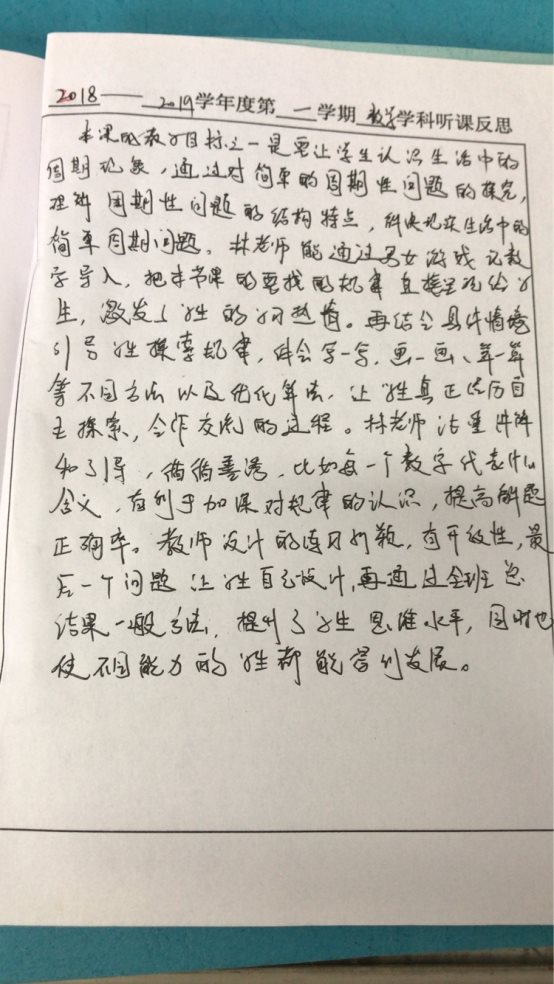 2018——2019学年度第一学期数学学科听课反思
本课的教学目标之一是要让学生认识生活中的
周期现象，通过对简单的周期性问题的探究，
理解周期性问题的结构特点，解决现实生活中的
简单周期问题。林老师能通过男女游戏记数
字导入，把本节课的要找的规律直接呈现给学
生，激发了学生的学习热情。再结合具体情境
引导学生探索规律，体会写一写，画一画、算一算
等不同方法以及优化算法，让学生真正经历自
主探索，合作交流的过程。林老师注重讲解
和引导，循循善诱，比如每一个数字代表什么
含义，有利于加深对规律的认识，提高解题
正确率。教师设计的练习新颖，有开放性，最
后一个问题让学生自己设计，再通过全班总
结果一般方法，提升了学生思维水平，同时也
使不同能力的学生都能得到发展。